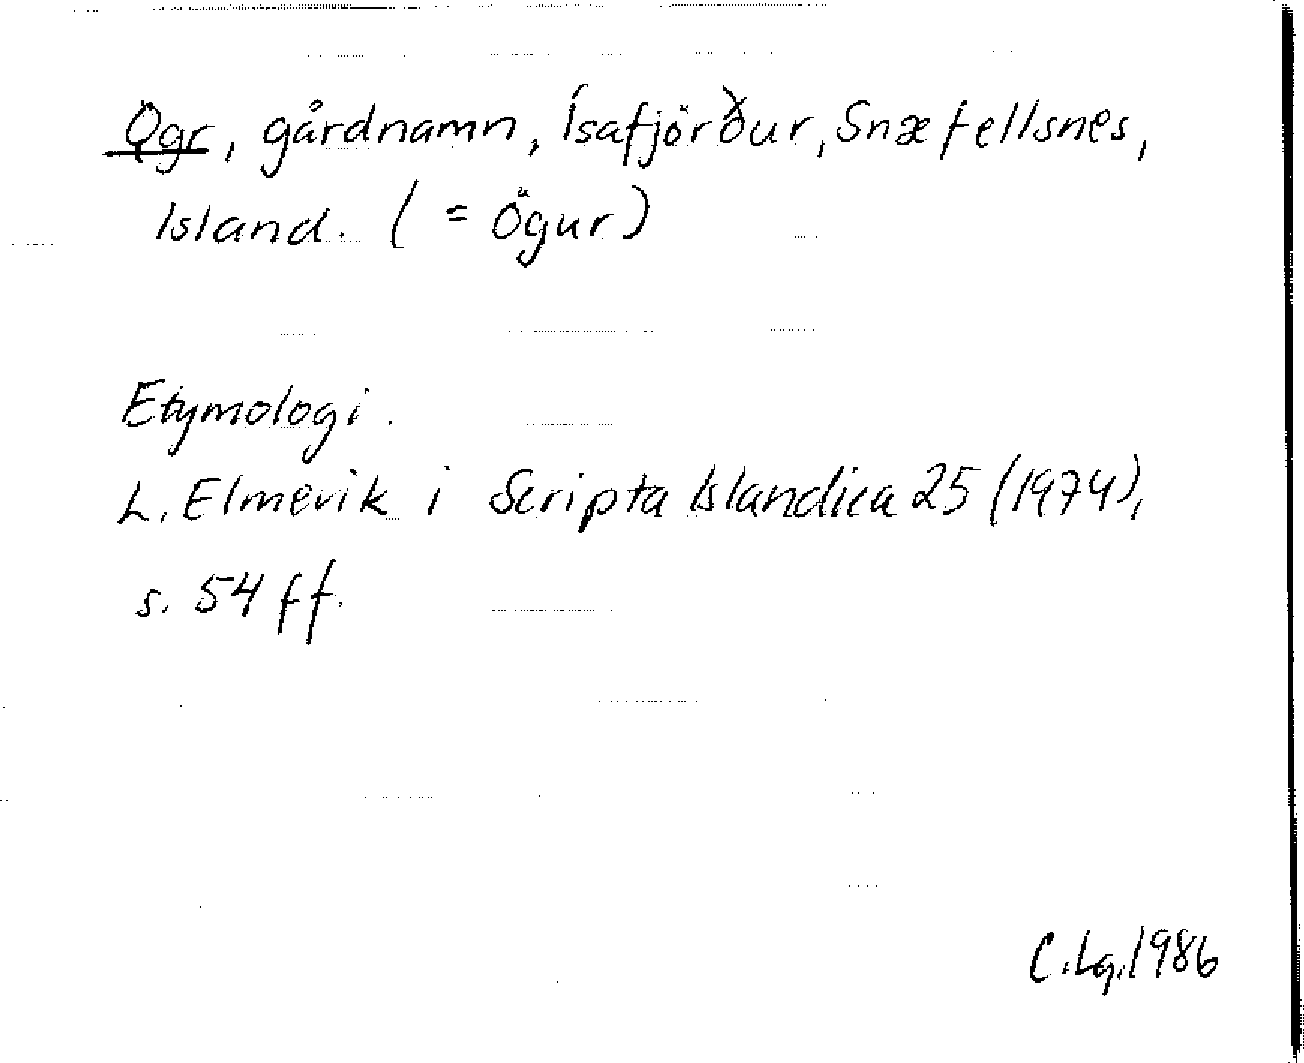 Ǫgr, gårdnamn, Ísafjörður, Snæfellsnes,
Island. ( = Ögur)
Etymologi.
L. Elmevik i Scripta Islandica 25 (1974),
s. 54 ff.
C. Lg. 1986